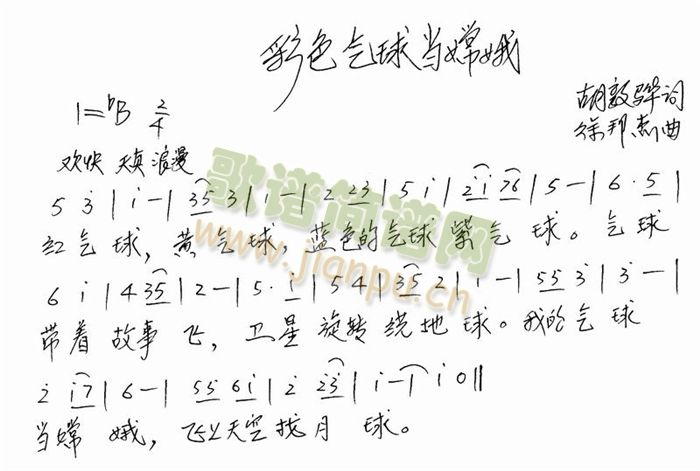 彩色气球当嫦娥
1=bB 2/4
胡敦骅词
徐邦杰曲
欢快 天真 浪漫
5 3 | i - | 35 3 | i - | 2 23 | 5 i | 2i 76 | 5 - | 6 · 5 |
红气球，黄气球，蓝色的气球紫气球。气球
6 i | 4 35 | 2 - | 5 · i | 5 4 | 35 2 | i - | 55 3 | 3 - |
带着故事飞，卫星旋转绕地球。我的气球
2 i7 | 6 - | 55 6i | 2 23 | i - | i 0 ||
当嫦娥，飞上天空找月球。
歌谱简谱网
www.jianpu.cn